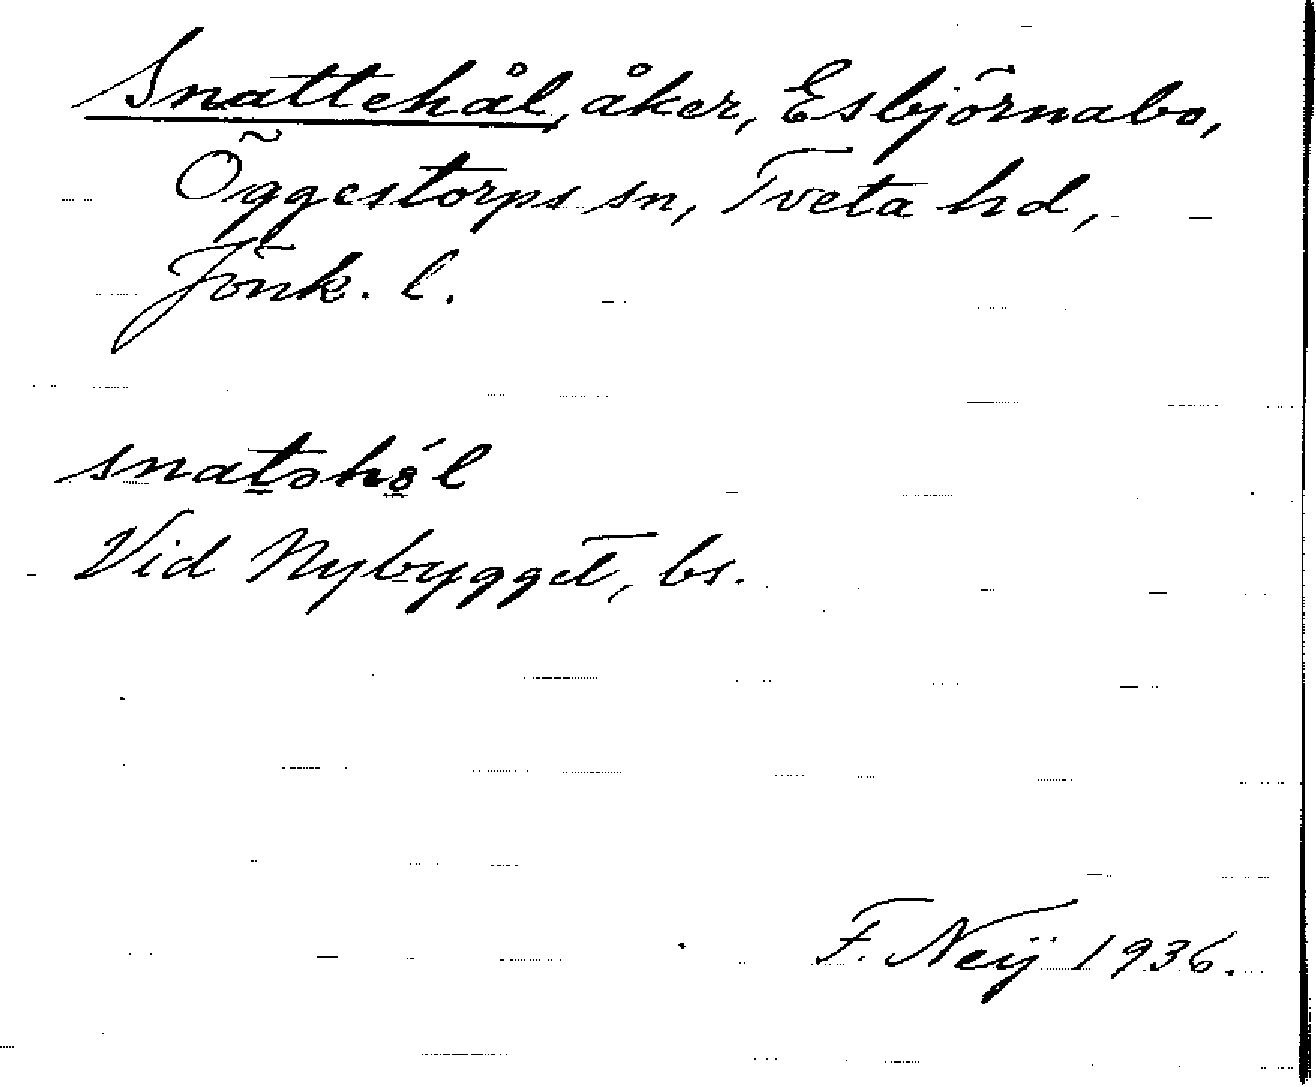 Snattehål, åker, Esbjörnabo,
Öggestorps sn, Tveta hd,
Jönk. l.
Vid Nybygget, bs.
F. Neij 1936.